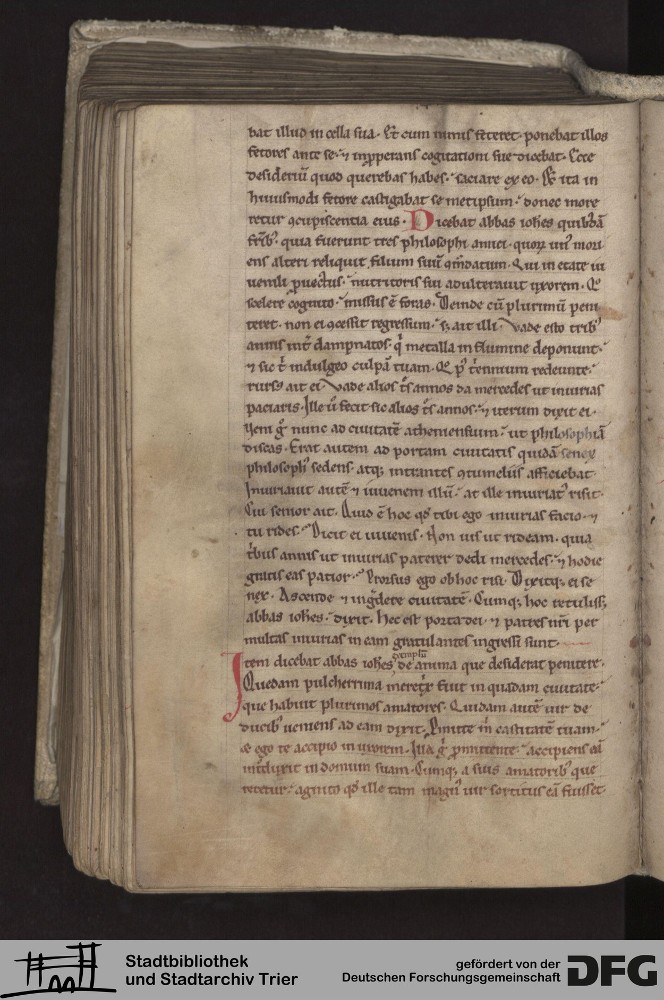 bat illud in cella sua. Et cum nimis feteret. ponebat illos
fetores ante se. ⁊ inpꝑans cogitationi sue dicebat. Ecce
desideriũ quod querebas habes. saciare ex eo. Et ita in
huiusmodi fetore castigabat se metipsum. donec more
retur ꝯcupiscentia eius. Dicebat abbas ioh̅es quibꝰdã
fr̅ibꝰ. quia fuerunt tres philosophi amici. quoꝝ unꝰ mori
ens alteri reliquit filium suũ ꝯm̅datum. Qui in etate iu
uenili ꝓuectus. nutritoris sui adulterauit uxorem. Qͦ
scelere cognito. missus ẽ foras. Deinde cũ plurimũ peni
teret. non ei ꝯcessit regressum. s; ait illi. Vade esto tribꝰ
annis int̾ dampnatos. qͥ metalla in flumine deponunt.
⁊ sic tͥ indulgeo culpã tuam. Qͦ pꝰ tͥennium redeunte.
rursꝰ ait ei. Vade alios tͤs annos da mercedes ut iniurias
paciaris. Ille u̅ fecit sic alios tͤs annos. ⁊ iterum dixit ei.
Veni gͦ nunc ad ciuitatẽ atheniensium. ut philosophiã
discas. Erat autem ad portam ciuitatis quidã senex
philosophꝰ sedens. atq; intrantes ꝯtumeliis afficiebat.
Iniuriauit autẽ ⁊ iuuenem illũ. at ille iniuriatꝰ risit.
Cui senior ait. Quid ẽ hoc qd̾ tibi ego iniurias facio. ⁊
tu rides. Dicit ei iuuenis. Non uis ut rideam. quia
tͥbus annis ut iniurias paterer dedi mercedes. ⁊ hodie
gratis eas patior. Prorsus ego ob hoc risi. Dixitq; ei se
nex. Ascende ⁊ ingͤdere ciuitatẽ. Cumq; hoc retulisset
abbas ioh̅es. dixit. Hec est porta dei. ⁊ patres nr̅i per
multas iniurias in eam gratulantes ingressi sunt.
Item dicebat abbas ioh̅es exemplũ de anima que desiderat penitere.
Quedam pulcherrima meretͥx fuit in quadam ciuitate.
que habuit plurimos amatores. Quidam autẽ uir de
ducibꝰ ueniens ad eam dixit. Pmitte m̅ castitatẽ tuam.
⁊ ego te accipio in uxorem. Illa gͦ ꝓmittente. accipiens eã
int̾duxit in domum suam. Cumq; a suis amatoribꝰ que
reretur. agnito qd̾ ille tam magnꝰ uir sortitus eã fuisset.
Stadtbibliothek
und Stadtarchiv Trier
gefördert von der
Deutschen Forschungsgemeinschaft
DFG